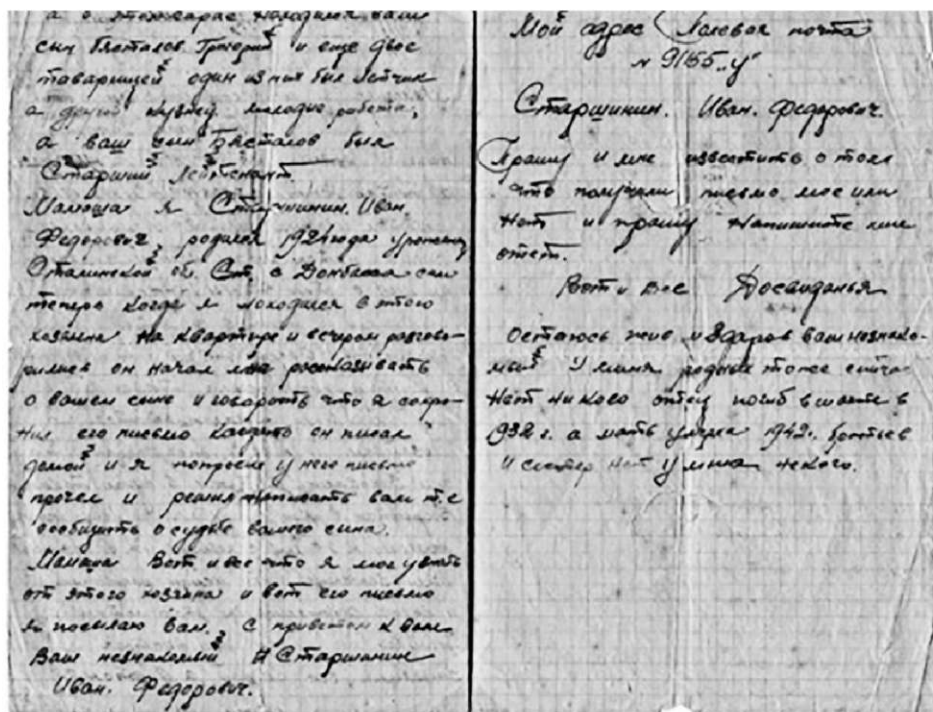 а в этом сарае находился ваш
сын Бесталов Григорий и еще двое
товарищей один из них был Летчик
а другой кузнец молодые ребята,
а ваш сын Бесталов был
Старший Лейтенант
Мамаша я Старшинин. Иван.
Федорович, родился 1921 года уроженец
Сталинской об. Ст. с Донбасса сам
теперь когда я находился в этого
хозяина на квартире и вечером разгово-
рились он начал мне россказивать
о вашем сине и говорить что я сохро-
нил его писмо каторго он писал
домой и я попросил у него письмо
прочел и решил написать вам т.е
сообщить о судьбе вашего сина.
Мамаша Вот и все что я мог узнать
от этого хозяина и вот его письмо
я посылаю вам, с приветом к вам
Ваш незнакомый И Старшинин
Иван. Федорович.
Мой адрес Полевая почта
№ 91155 „У"
Старшинин. Иван. Федорович.
Прашу и мне известить о том
что получили письмо мое или
нет и прашу Напишите мне
ответ.
Вот и Все Досвиданья
Остаюсь жив и здаров ваш незнако-
мый У миня родных тоже сичас
Нет никово отец погиб в шахте в
1932 г. а мать умерла 1942г. братьев
и сестер нет у миня некого.